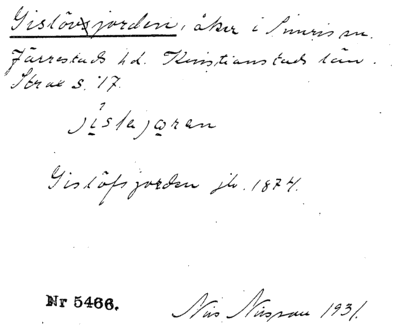 Gislövsjorden, åker i Simris sn.
Järrestads hd. Kristianstads län.
s. 17.
jislajoran
Gislöfsjorden jb. 1874.
Nr 5466.
Nils 1931.